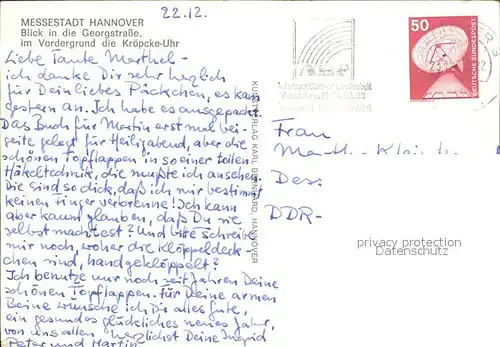 MESSESTADT HANNOVER
Blick in die Georgstraße,
im Vordergrund die Kröpcke-Uhr
22.12.
Liebe Tante Marthel-
ich danke Dir sehr herzlich
für Dein liebes Päckchen, es kam
gestern an. Ich habe es ausgepackt.
Das Buch für Martin erst mal bei-
seite gelegt für Heiligabend, aber die
schönen Topflappen in so einer tollen
Häkeltechnik, die mußte ich ansehen.
Die sind so dick, daß ich mir bestimmt
keinen Finger verbrenne! Ich kann
aber kaum glauben, daß Du sie
selbst machtest? Und bitte schreibe
mir noch, woher die Klöppeldeck-
chen sind, handgeklöppelt?
Ich benutze nur noch seit Jahren Deine
schönen Topflappen. Für Deine armen
Beine wünsche ich Dir alles Gute,
ein gesundes glückliches neues Jahr,
von uns allen herzlichst Deine Ingrid
Peter und Martin
KUNSTVERLAG KARL BERNHARD, HANNOVER
50
DEUTSCHE BUNDESPOST
Frau
Des
DDR-
privacy protection
Datenschutz